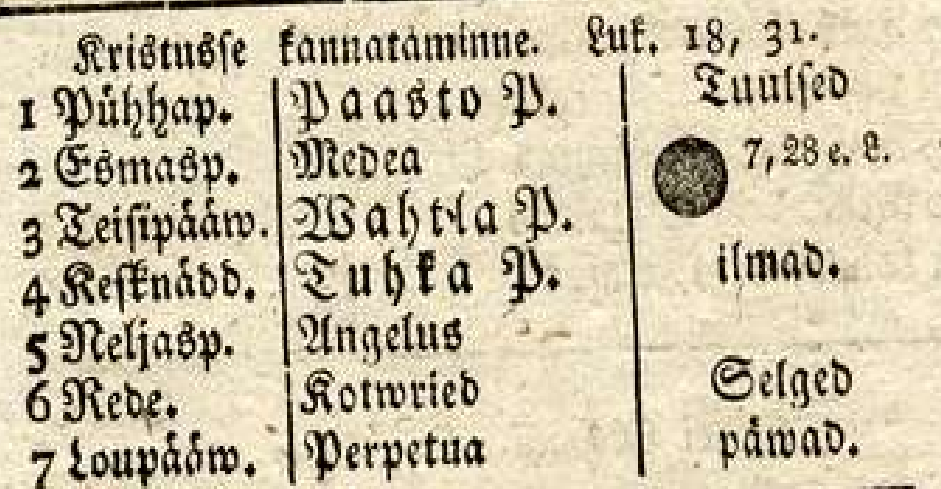 Kristusse kannataminne. Luk. 18, 31.
1 Pühhap. Paasto P. Tuulsed
2 Esmasp. Medea 7, 28 e. L.
3 Teisipääw. Wahtla P.
4 Kesknädd. Tuhka P. ilmad.
5 Neljasp. Angelus
6 Rede. Kotwried Selged
7 Loupääw. Perpetua päwad.